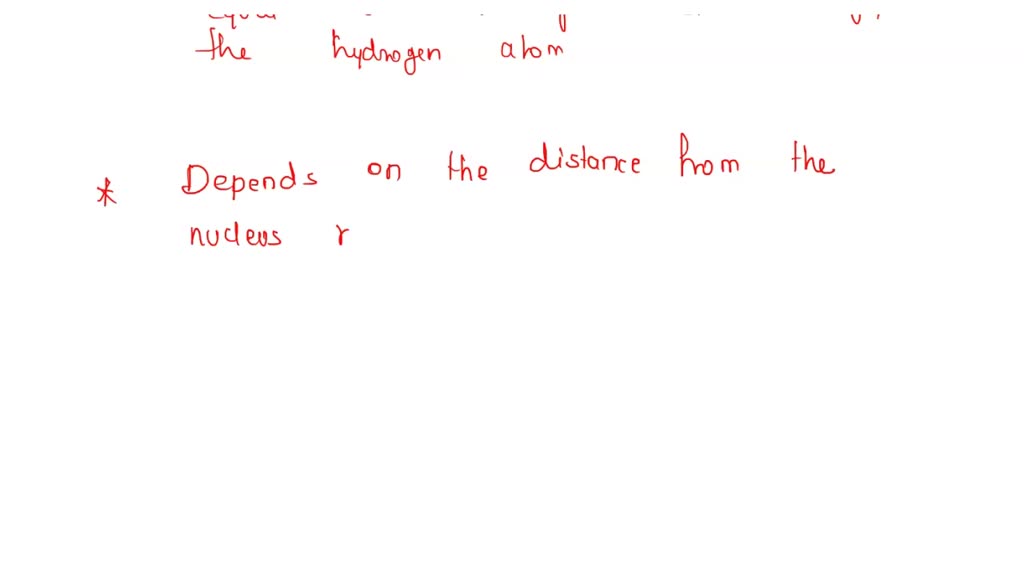 the hydrogen atom
* Depends on the distance from the
nucleus r